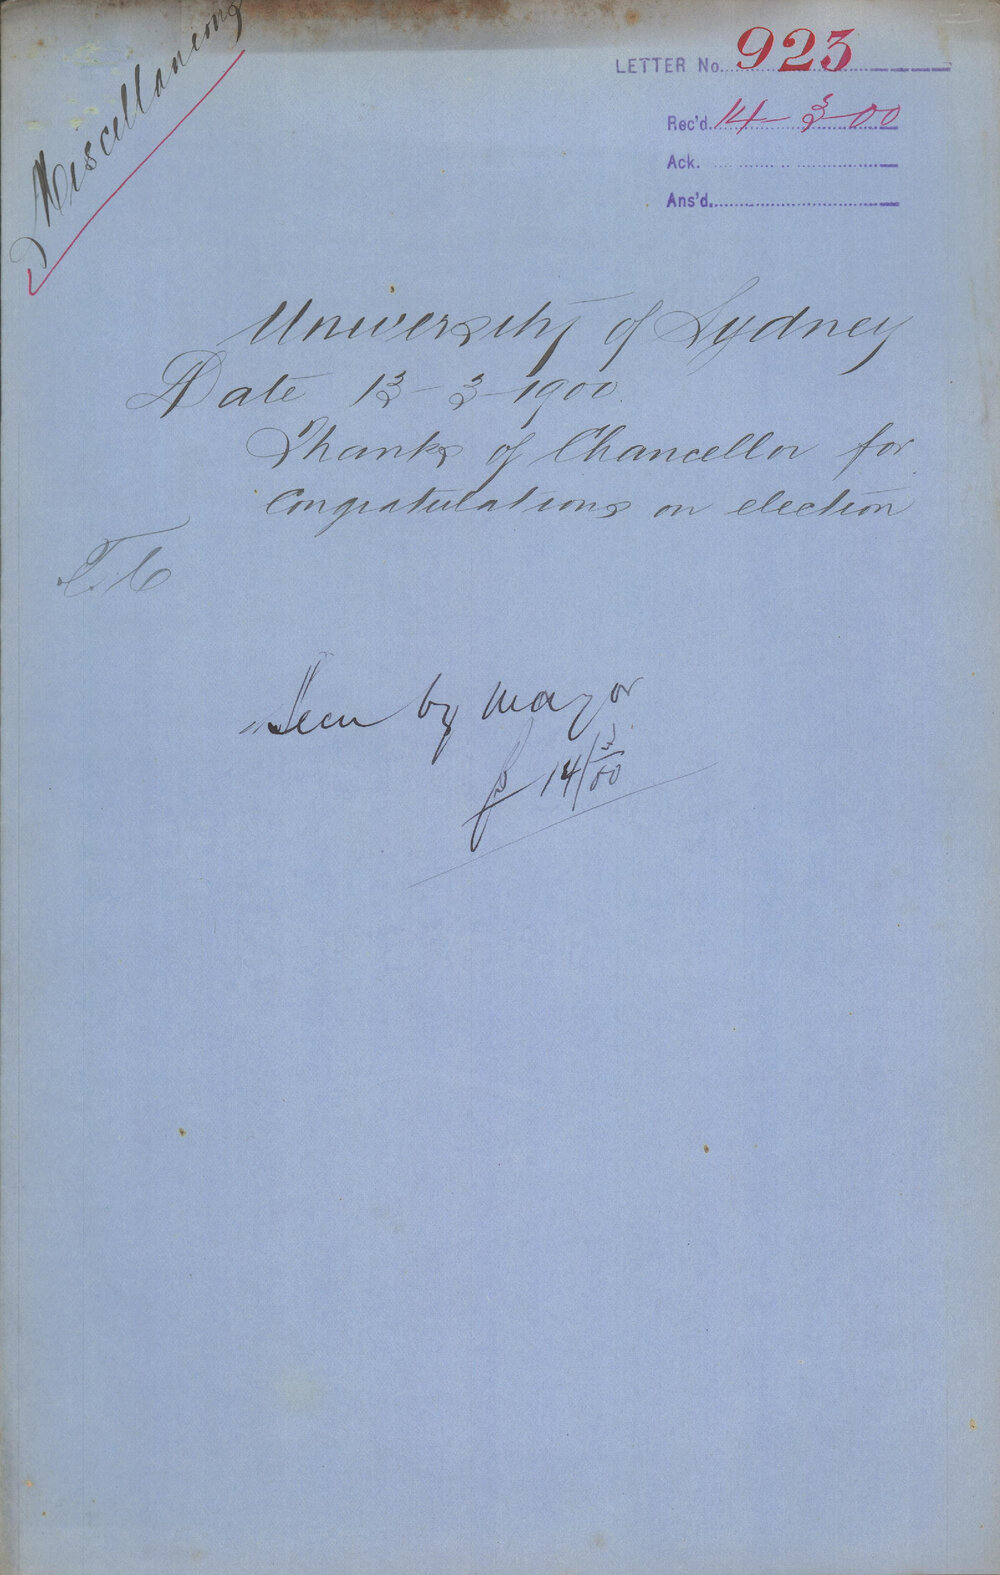 Miscellaneous
LETTER No. 923
Rec'd. 14-3-00
Ack.
Ans'd.
University of Sydney
Date 13-3-1900.
Thanks of Chancellor for
Congratulations on election
T.C
Seen by Mayor
14/3/00